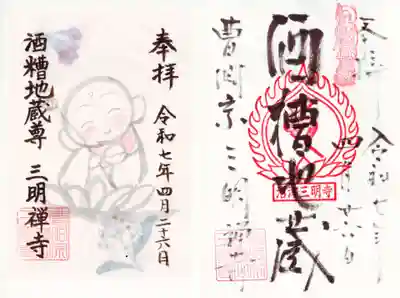 奉拝
令和七年四月二十六日
酒糟地蔵尊
三明禅寺
奉拝
令和七年
四月廿六日
酒糟地蔵
曹洞宗三明禅寺
三明寺